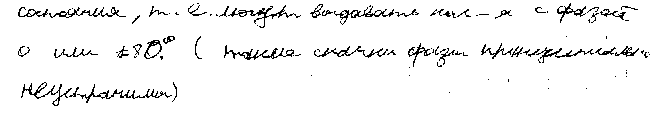 состояния, т.е. могут выдавать кол-я с фазой
0 или 180.° ( такие скачки фазы принципиально
неустранимы)